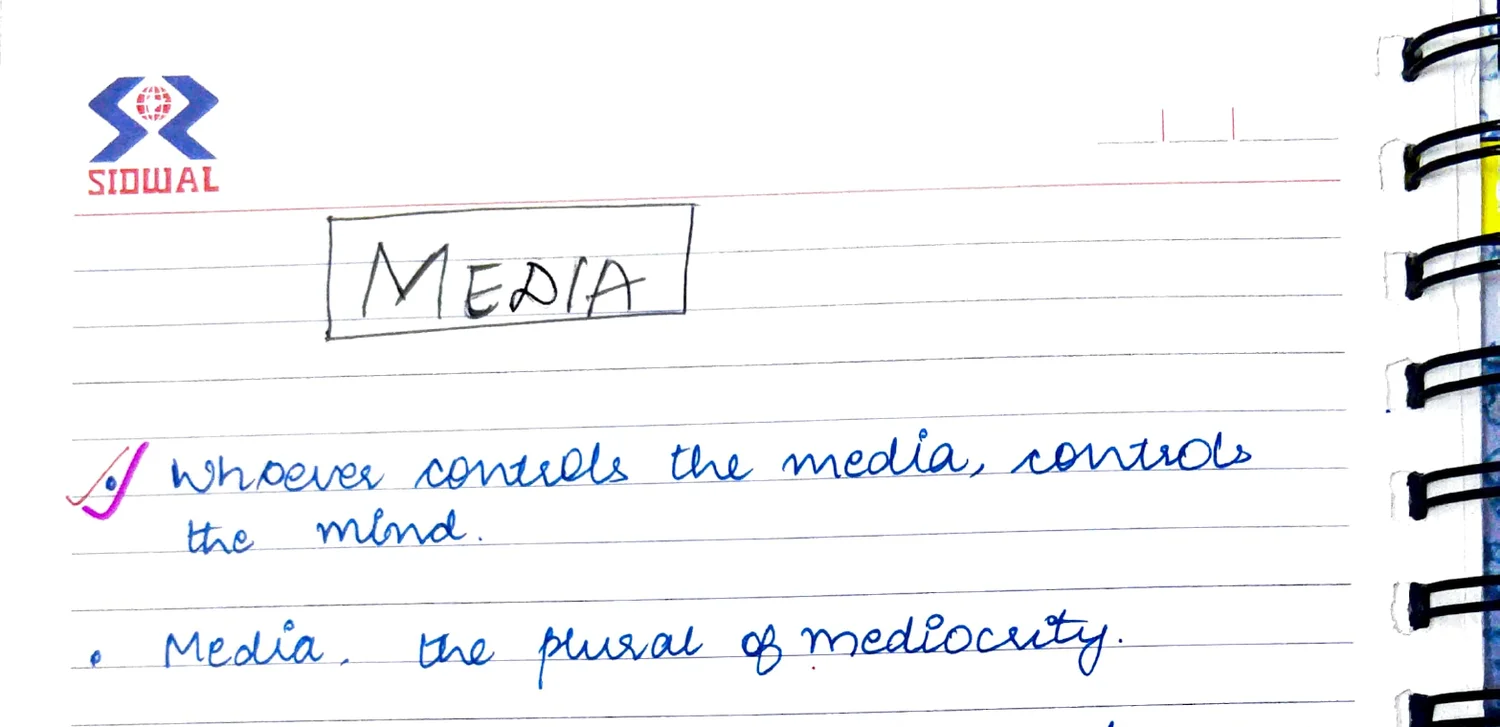 SIDWAL
MEDIA
Whoever controls the media, controls
the mind.
• Media, the plural of mediocrity.